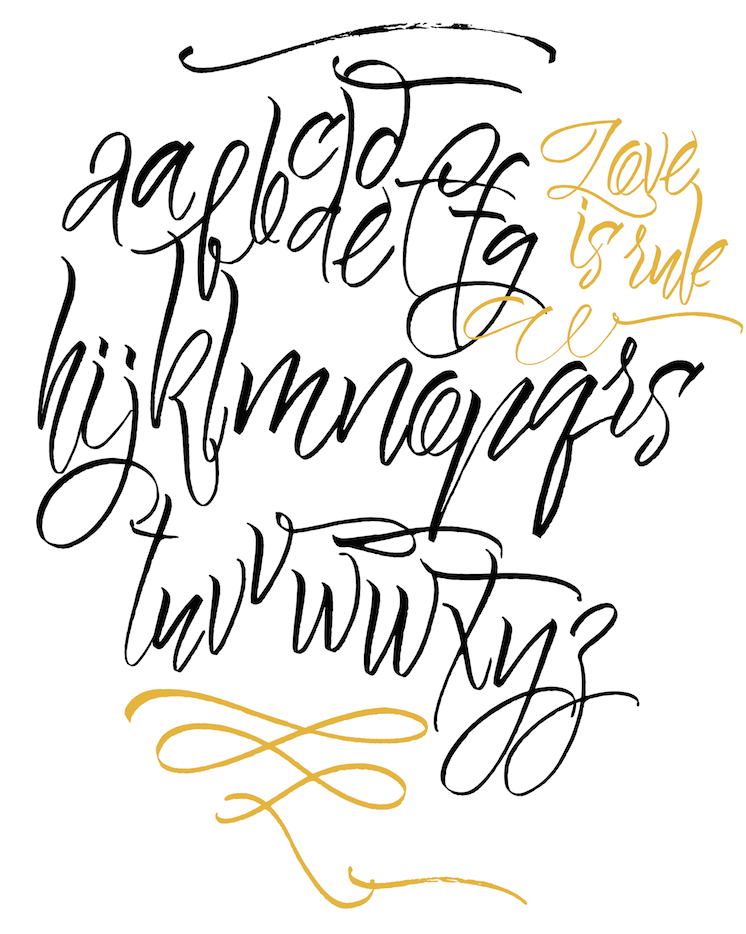 aabbcddeffg
Love
is rule
hijklmnopqrs
tuvvwwxyz